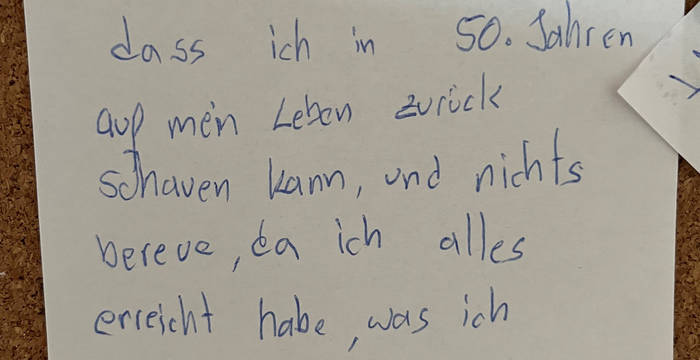 dass ich in 50. Jahren
auf mein Leben zurück
schauen kann, und nichts
bereue, da ich alles
erreicht habe, was ich